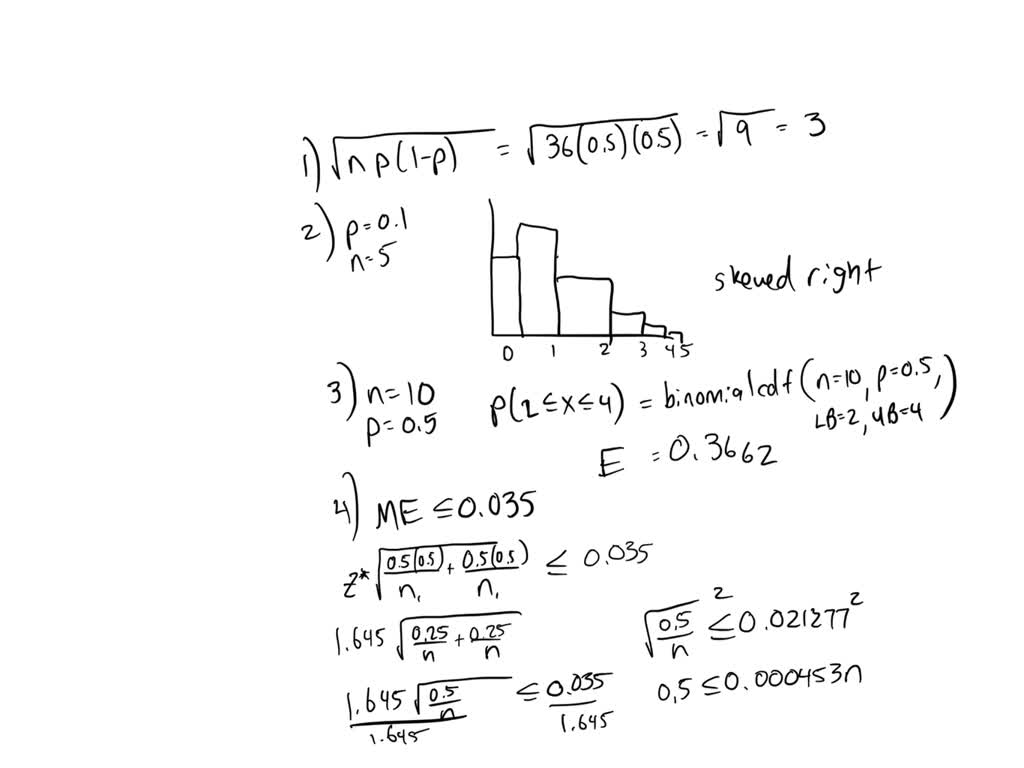 1) √np(1-p) = √36(0.5)(0.5) = √9 = 3
2) p=0.1
n=5
skewed right
0 1 2 3 4 5
3) n=10
p=0.5
P(2≤x≤4) = binomialcdf(n=10, p=0.5,
LB=2, UB=4)
E = 0.3662
4) ME ≤ 0.035
z* √0.5(0.5)/n₁ + 0.5(0.5)/n₁ ≤ 0.035
1.645 √0.25/n + 0.25/n
1.645 √0.5/n / 1.645 ≤ 0.035 / 1.645
√0.5/n ² ≤ 0.021277²
0.5 ≤ 0.000453n